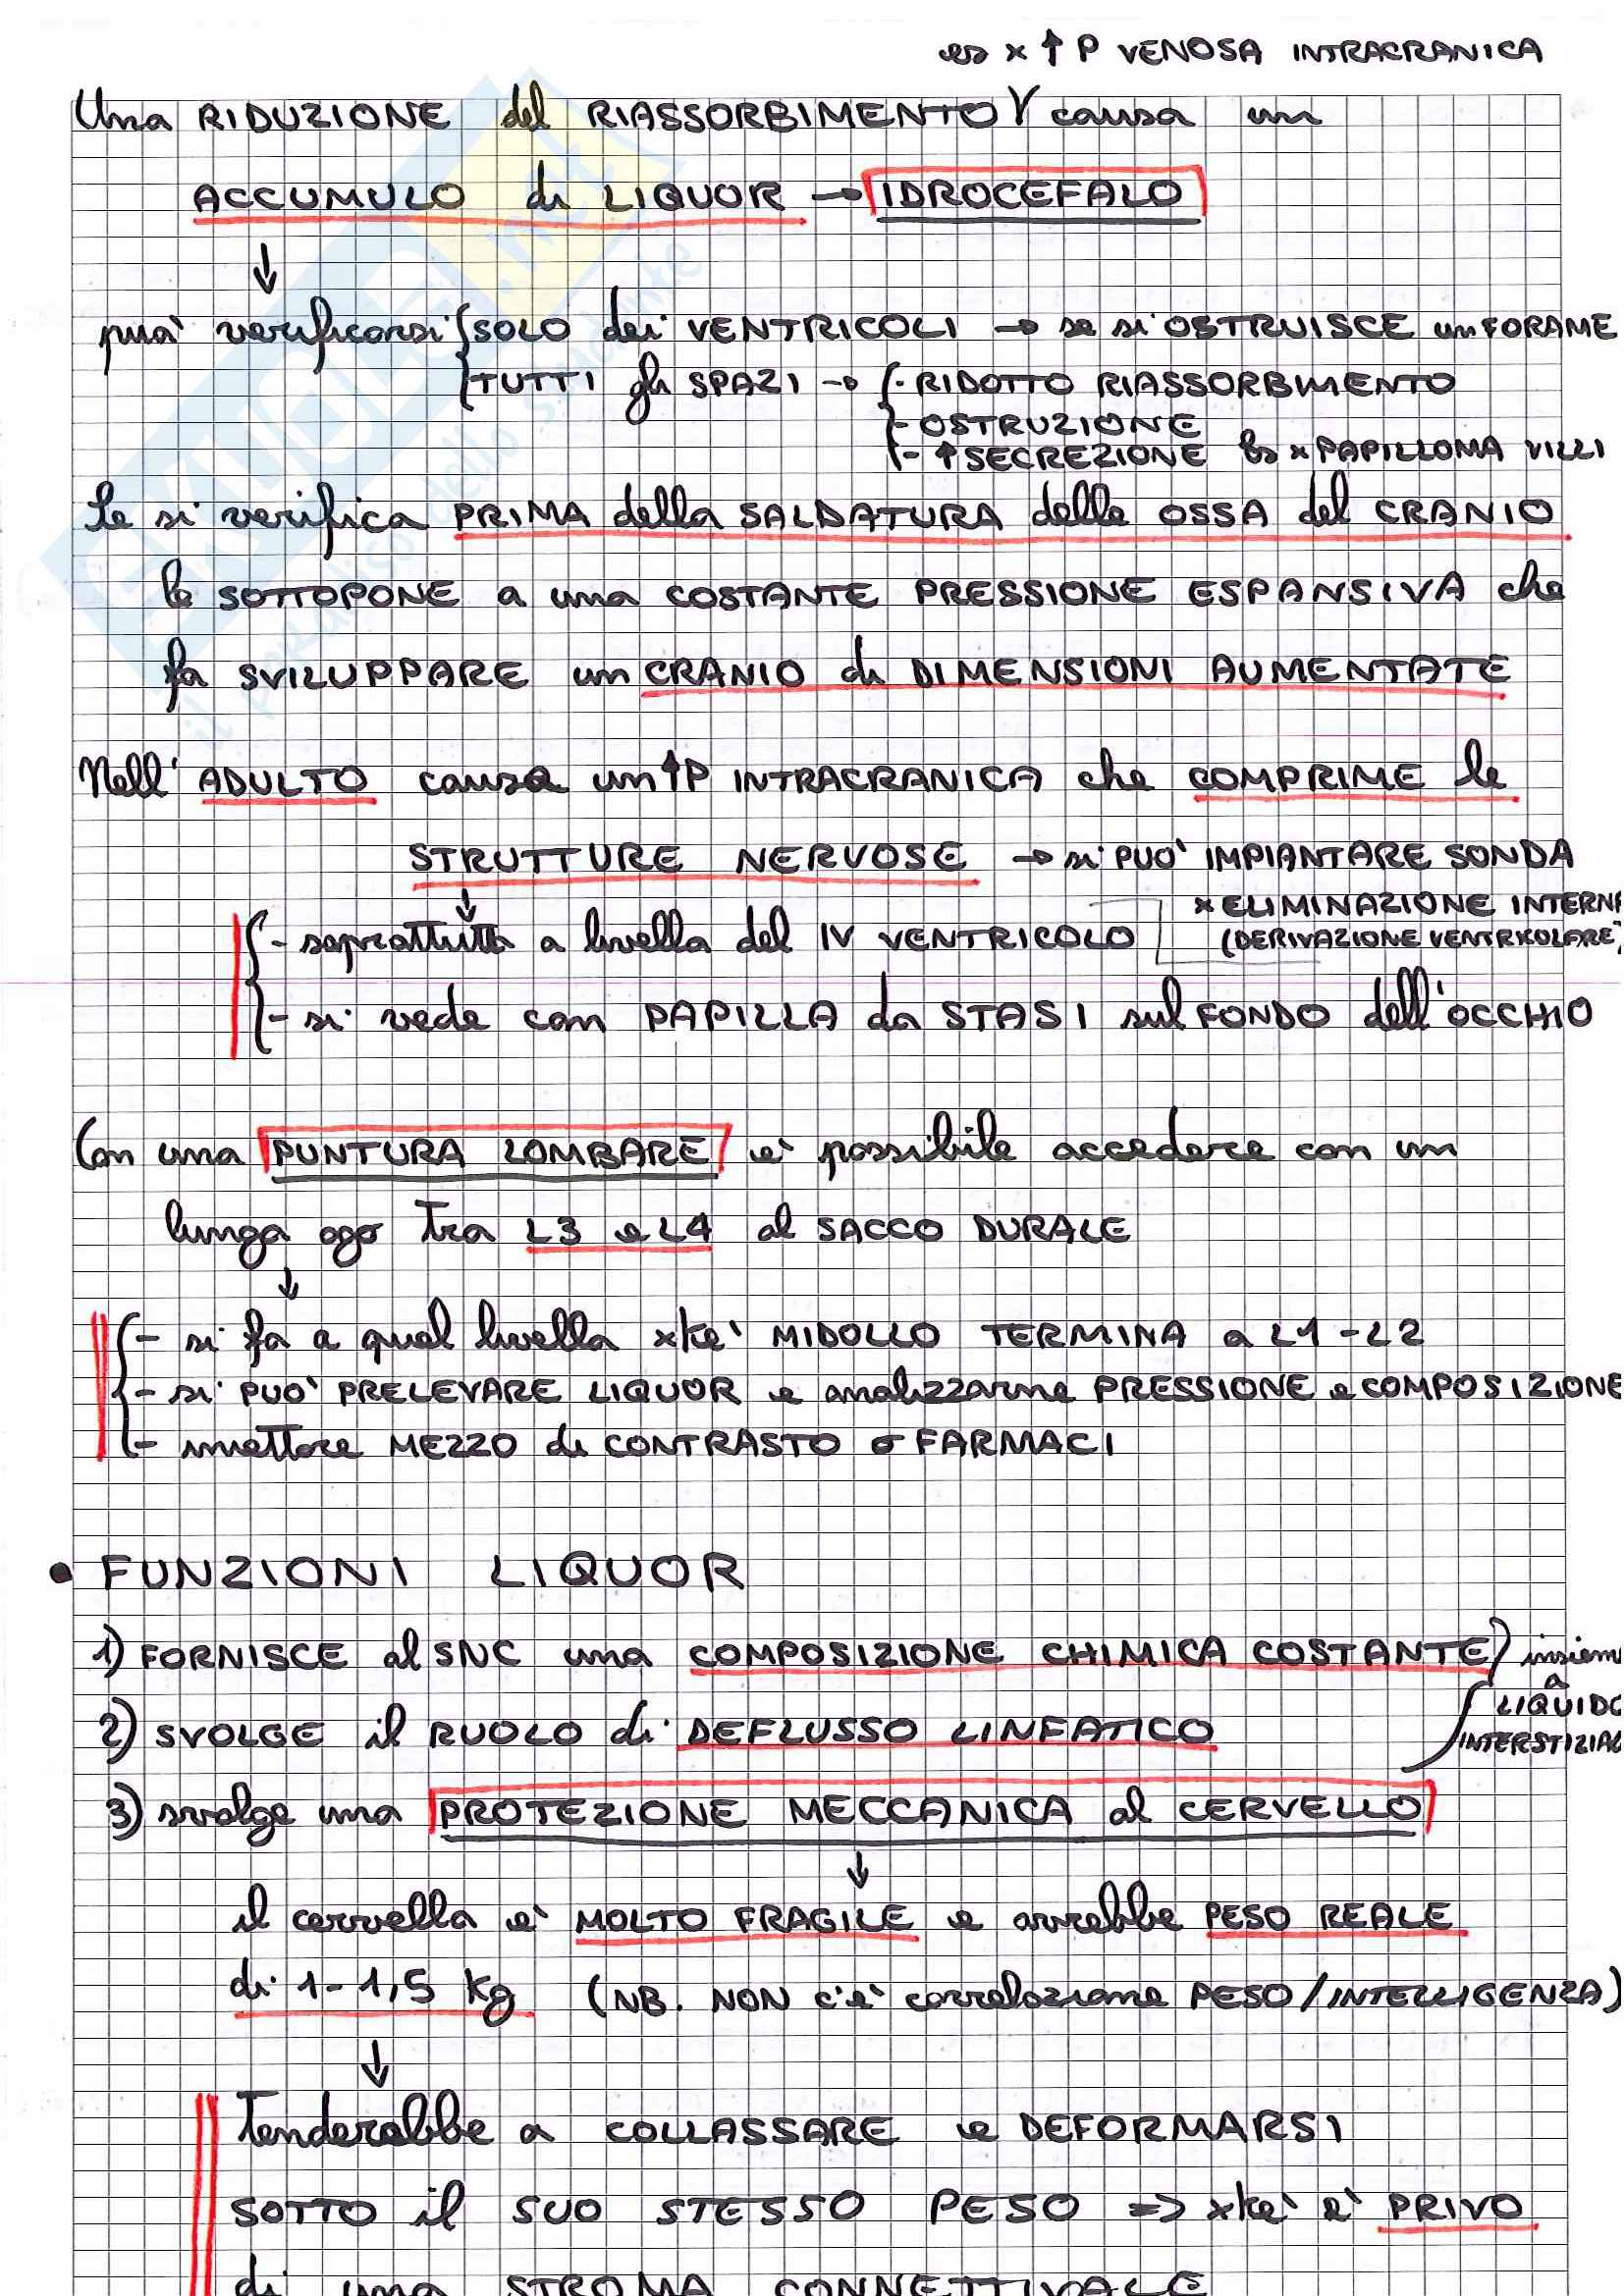 es x ↑ P VENOSA INTRACRANICA
Una RIDUZIONE del RIASSORBIMENTO causa un
ACCUMULO di LIQUOR → IDROCEFALO
↓
può verificarsi { SOLO dei VENTRICOLI → se si OSTRUISCE un FORAME
TUTTI gli SPAZI → { - RIDOTTO RIASSORBIMENTO
- OSTRUZIONE
- ↑ SECREZIONE es x PAPILLOMA VILLI
Se si verifica PRIMA della SALDATURA delle OSSA del CRANIO
le SOTTOPONE a una COSTANTE PRESSIONE ESPANSIVA che
fa SVILUPPARE un CRANIO di DIMENSIONI AUMENTATE
Nell' ADULTO causa un ↑P INTRACRANICA che COMPRIME le
STRUTTURE NERVOSE → si PUO' IMPIANTARE SONDA
x ELIMINAZIONE INTERNA
- soprattutto a livello del IV VENTRICOLO (DERIVAZIONE VENTRICOLARE)
- si vede con PAPILLA da STASI sul FONDO dell'OCCHIO
Con una PUNTURA LOMBARE è possibile accedere con un
lungo ago tra L3 e L4 al SACCO DURALE
↓
- si fa a quel livello xkè MIDOLLO TERMINA a L1-L2
- si PUO' PRELEVARE LIQUOR e analizzarne PRESSIONE e COMPOSIZIONE
- immettere MEZZO di CONTRASTO o FARMACI
• FUNZIONI LIQUOR
1) FORNISCE al SNC una COMPOSIZIONE CHIMICA COSTANTE) insiem
a
LIQUIDO
2) SVOLGE il RUOLO di DEFLUSSO LINFATICO
INTERSTIZIAL
3) svolge una PROTEZIONE MECCANICA al CERVELLO
↓
il cervello è MOLTO FRAGILE e avrebbe PESO REALE
di 1-1,5 kg (NB. NON c'è correlazione PESO/INTELLIGENZA)
↓
Tenderebbe a COLLASSARE e DEFORMARSI
SOTTO il SUO STESSO PESO => xkè è PRIVO
di uno STROMA CONNETTIVALE
SKUOLA.net
il paradiso dello studente